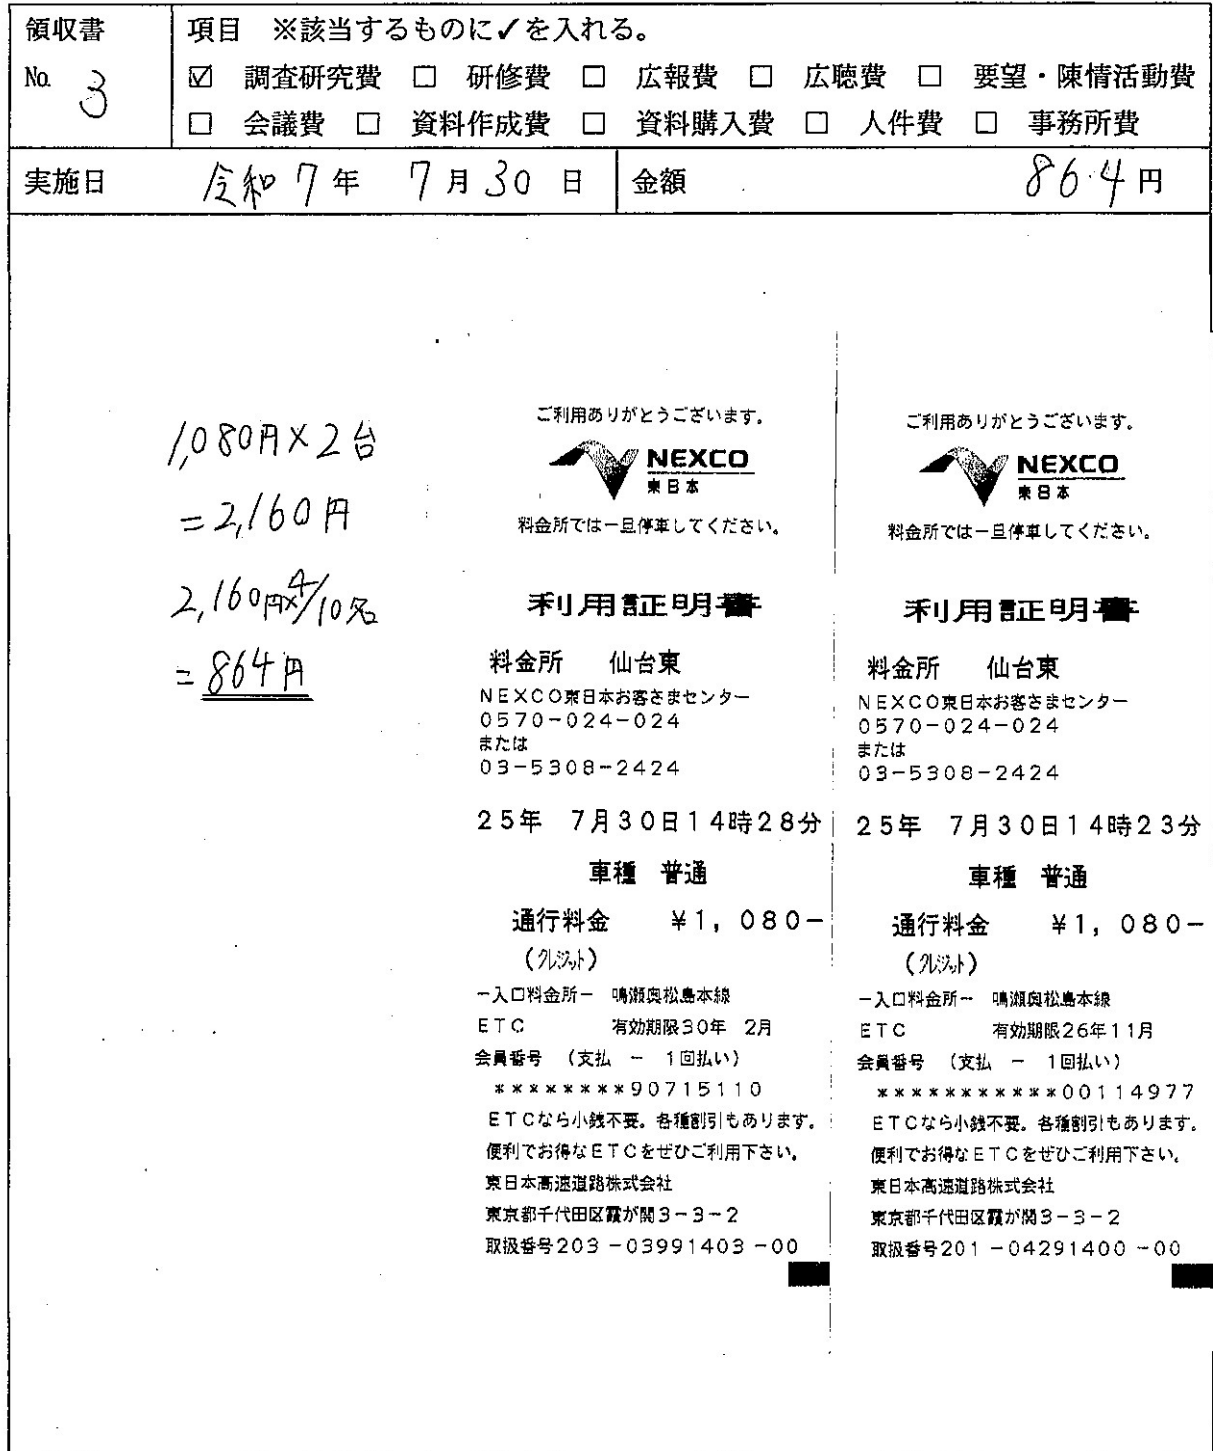 領収書
No. 3
項目 ※該当するものに✓を入れる。
☑ 調査研究費 □ 研修費 □ 広報費 □ 広聴費 □ 要望・陳情活動費
□ 会議費 □ 資料作成費 □ 資料購入費 □ 人件費 □ 事務所費
実施日 令和 7 年 7 月 30 日 金額 864 円
1,080円×2台
=2,160円
2,160円×4/10名
=864円
ご利用ありがとうございます。
NEXCO
東日本
料金所では一旦停車してください。
利用証明書
料金所 仙台東
NEXCO東日本お客さまセンター
0570-024-024
または
03-5308-2424
25年 7月30日14時28分
車種 普通
通行料金 ¥1,080-
(クレジット)
-入口料金所- 鳴瀬奥松島本線
ETC 有効期限30年 2月
会員番号 (支払 - 1回払い)
********90715110
ETCなら小銭不要。各種割引もあります。
便利でお得なETCをぜひご利用下さい。
東日本高速道路株式会社
東京都千代田区霞が関3-3-2
取扱番号203-03991403-00
ご利用ありがとうございます。
NEXCO
東日本
料金所では一旦停車してください。
利用証明書
料金所 仙台東
NEXCO東日本お客さまセンター
0570-024-024
または
03-5308-2424
25年 7月30日14時23分
車種 普通
通行料金 ¥1,080-
(クレジット)
-入口料金所- 鳴瀬奥松島本線
ETC 有効期限26年11月
会員番号 (支払 - 1回払い)
***********00114977
ETCなら小銭不要。各種割引もあります。
便利でお得なETCをぜひご利用下さい。
東日本高速道路株式会社
東京都千代田区霞が関3-3-2
取扱番号201-04291400-00